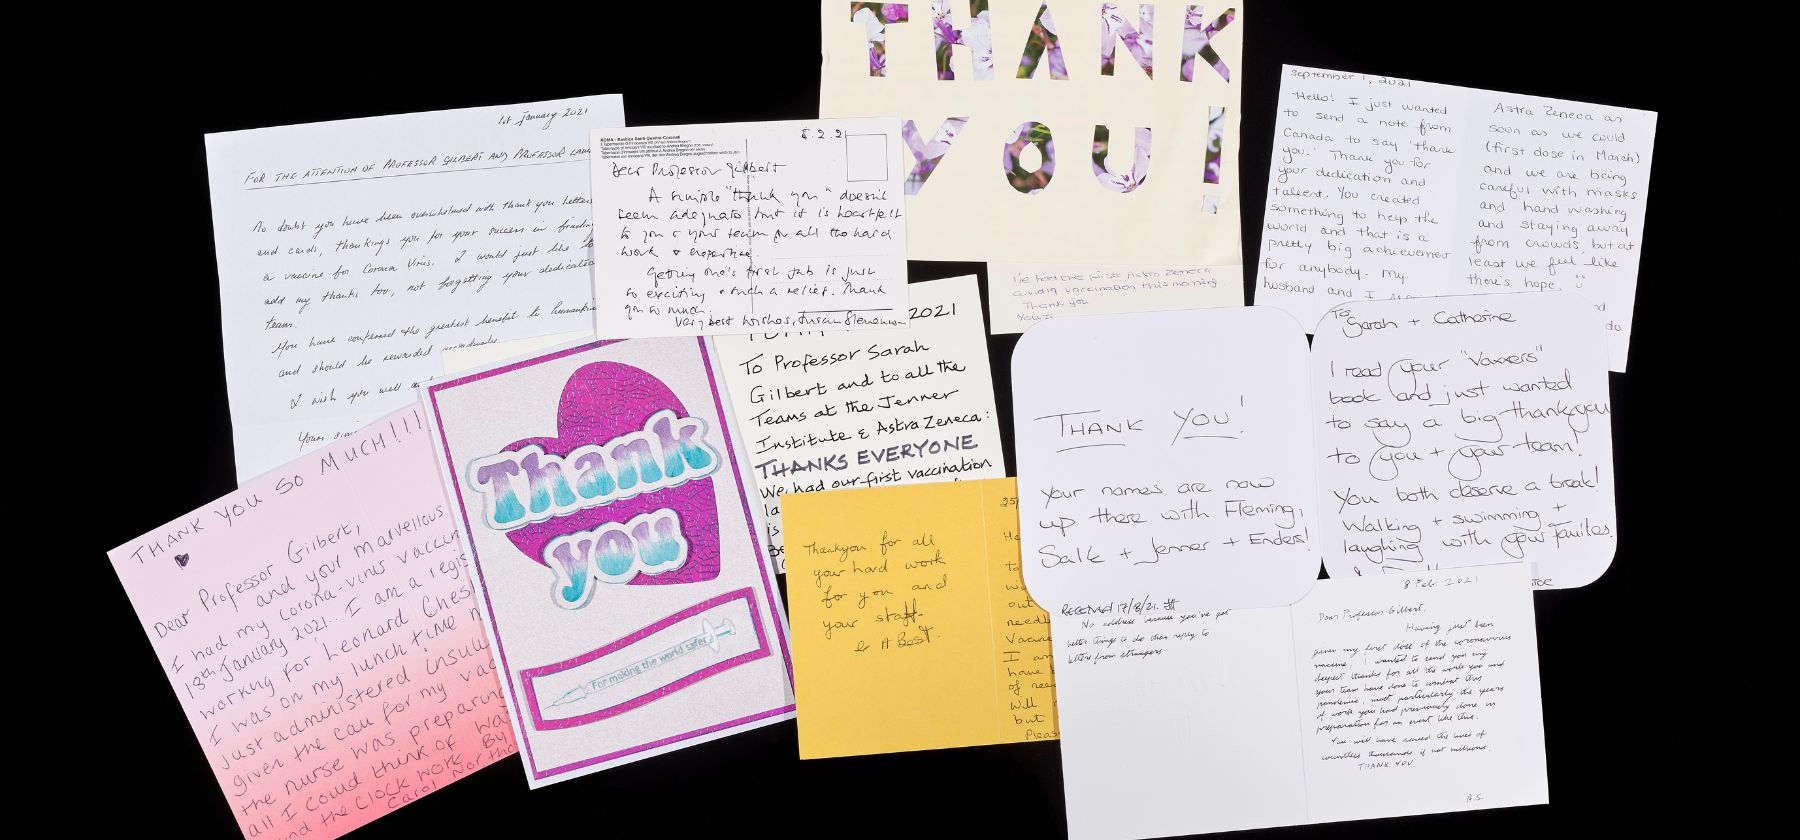 1st January 2021
FOR THE ATTENTION OF PROFESSOR GILBERT AND PROFESSOR LAM
No doubt you have been overwhelmed with thank you letters
and cards, thanking you for your success in finding
a vaccine for Corona Virus. I would just like to
add my thanks too, not forgetting your dedicated
team.
You have conferred the greatest benefit to humankind
and should be rewarded
I wish you well
Yours
ROMA - Basilica Santi Quattro Coronati
5.2.21
Dear Professor Gilbert
A simple "thank you" doesn't
seem adequate but it is heartfelt
to you & your team for all the hard
work & expertise.
Getting one's first jab is just
so exciting & such a relief. Thank
you so much.
Very best wishes, Susan
THANK
YOU!
I've had the first Astra Zeneca
covid19 vaccination this morning.
Thank you
September 1, 2021
Hello! I just wanted
to send a note from
Canada to say 'thank
you.' Thank you for
your dedication and
talent. You created
something to help the
world and that is a
pretty big achievement
for anybody. My
husband and I
Astra Zeneca as
soon as we could
(first dose in March)
and we are being
careful with masks
and hand washing
and staying away
from crowds but at
least we feel like
there's hope.
THANK YOU SO MUCH!!!!
Dear Professor Gilbert,
and your marvellous
I had my corona-virus vaccin
18th January 2021. I am a regis
working for Leonard Ches
I was on my lunch time
just administered insul
given the call for my vac
the nurse was preparing
all I could think of was
and the clock work By
Carol North
Thank
you
For making the world safer
2021
To Professor Sarah
Gilbert and to all the
Teams at the Jenner
Institute & Astra Zeneca:
THANKS EVERYONE
We had our first vaccination
la
is
Be
Thankyou for all
your hard work
for you and
your staff.
25/
He
to
out
need
Vaccine
I am
have
of
will
but
Pleas
THANK YOU!
Your names are now
up there with Fleming,
Salk + Jenner + Enders!
To
Sarah + Catherine
I read your "Vaxxers"
book and just wanted
to say a big thankyou
to you + your team!
You both deserve a break!
Walking + swimming +
laughing with your families.
RECEIVED 17/8/21.
No address because you've got
better things to do than reply to
letters from strangers
8 Feb 2021
Dear Professor Gilbert,
Having just been
given my first dose of the coronavirus
vaccine, I wanted to send you my
deepest thanks for all the work you and
your team have done to combat this
pandemic, most particularly the years
of work you had previously done in
preparation for an event like this.
You will have saved the lives of
countless thousands if not millions.
THANK YOU.
A.S.